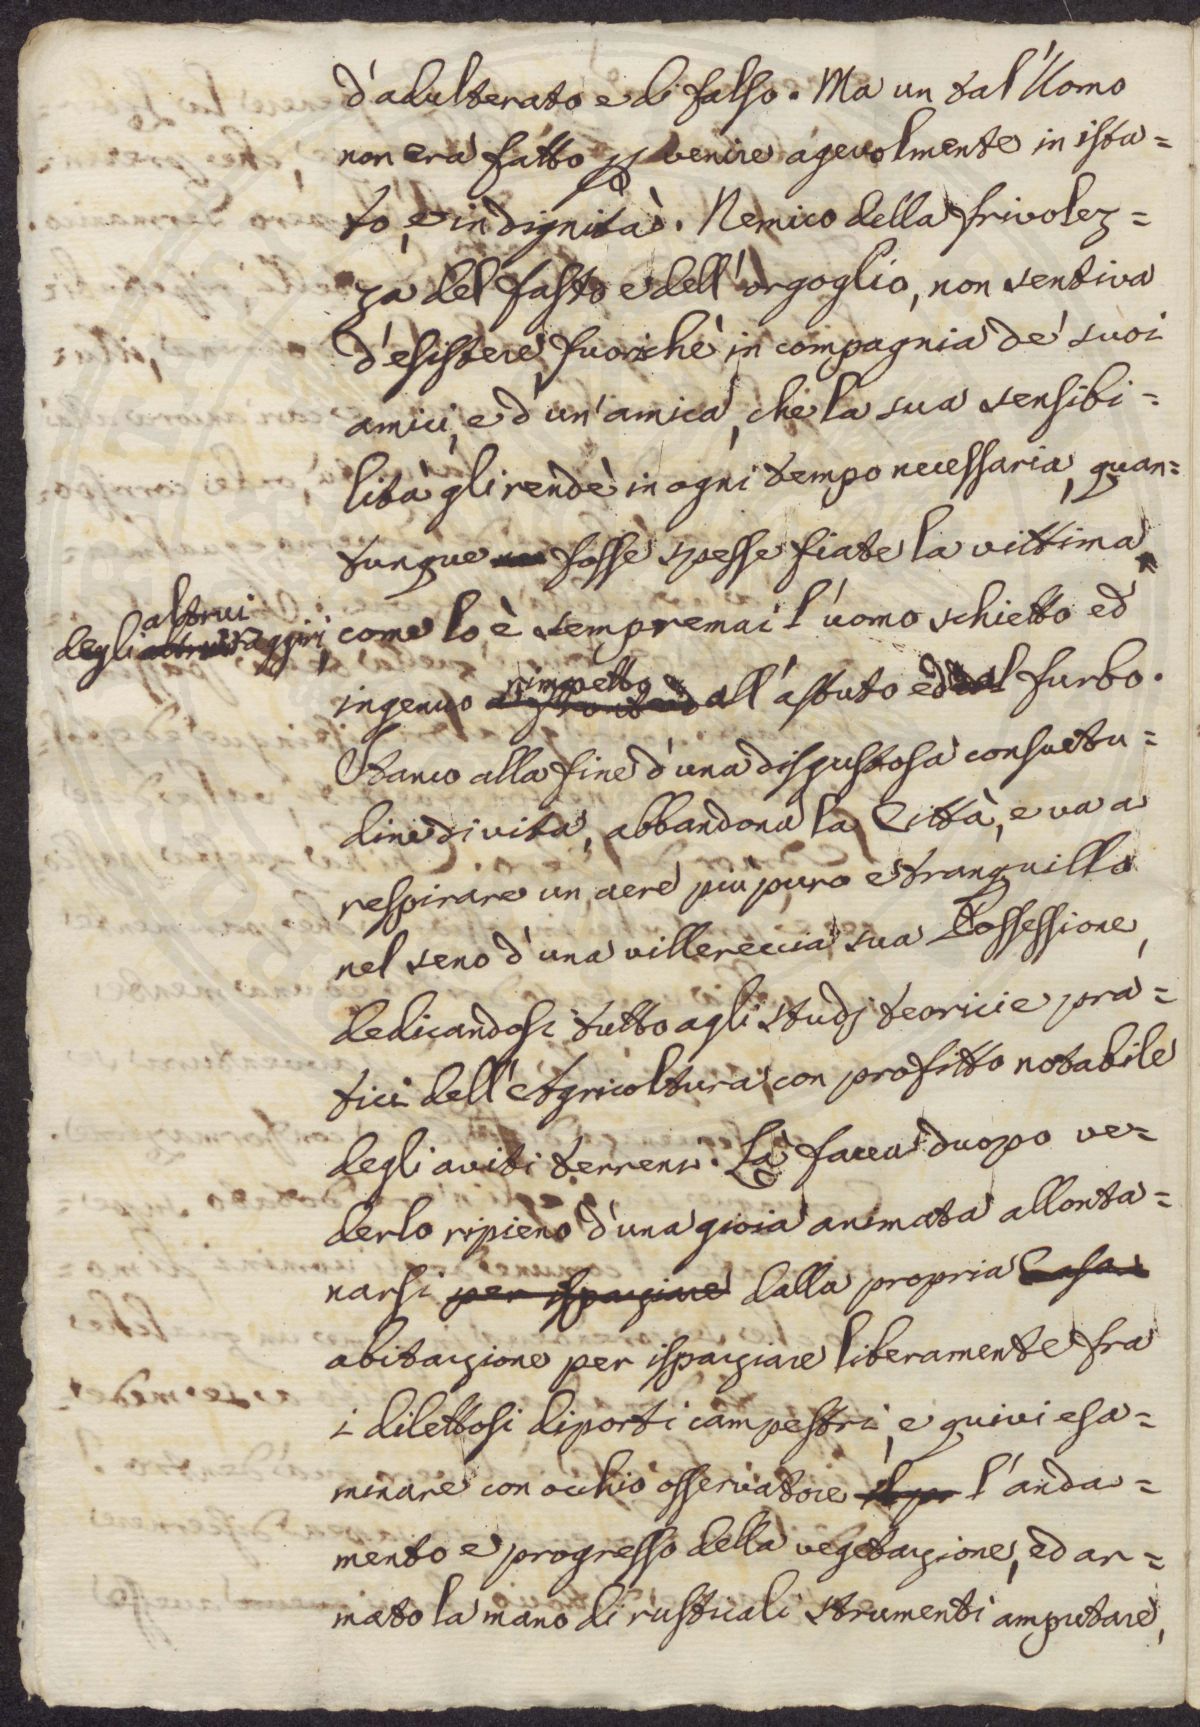 d'adulterato e di falso. Ma un tal'Uomo
non era fatto p venire agevolmente in ista=
to, e in dignità. Nemico della frivolez=
za del fasto e dell'orgoglio, non sentiva
d'esistere, fuorichè in compagnia de' suoi
amici, e d'un'amica, che la sua sensibi=
lità gli rendè in ogni tempo necessaria, quan=
tunque fosse spesse fiate la vittima
altrui
degli raggiri, come lo è sempremai l'uomo schietto ed
rimpetto
ingenuo all'astuto ed al furbo.
Stanco alla fine d'una disgustosa consuetu=
dine di vita, abbandona la Città, e va a
respirare un aere più puro e tranquillo
nel seno d'una villereccia sua Possessione,
dedicandosi tutto agli studj teorici e pra=
tici dell'Agricoltura con profitto notabile
degli aviti terreni. Là facea duopo ve=
derlo ripieno d'una gioia animata allonta=
narsi per ispaziare dalla propria Casa
abitazione per ispaziare liberamente fra
i dilettosi diporti campestri, e quivi esa=
minare con occhio osservatore il pr l'anda=
mento e progresso della vegetazione, ed ar=
mato la mano di rusticali strumenti amputare,